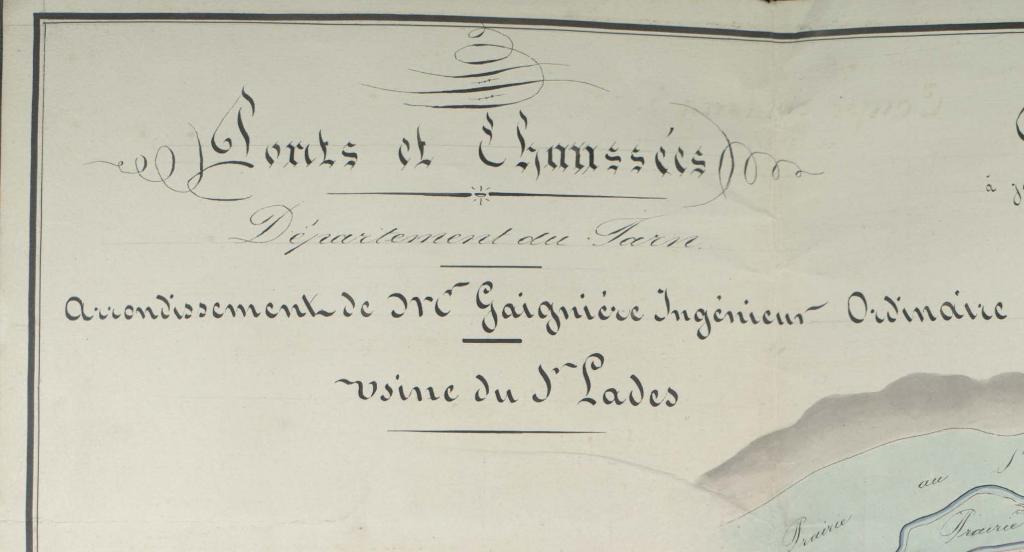 Ponts et Chaussées
à
Département du Tarn.
Arrondissement de Mr Gaignière Ingénieur Ordinaire
usine du Sr Lades
au
Prairie
Prairie